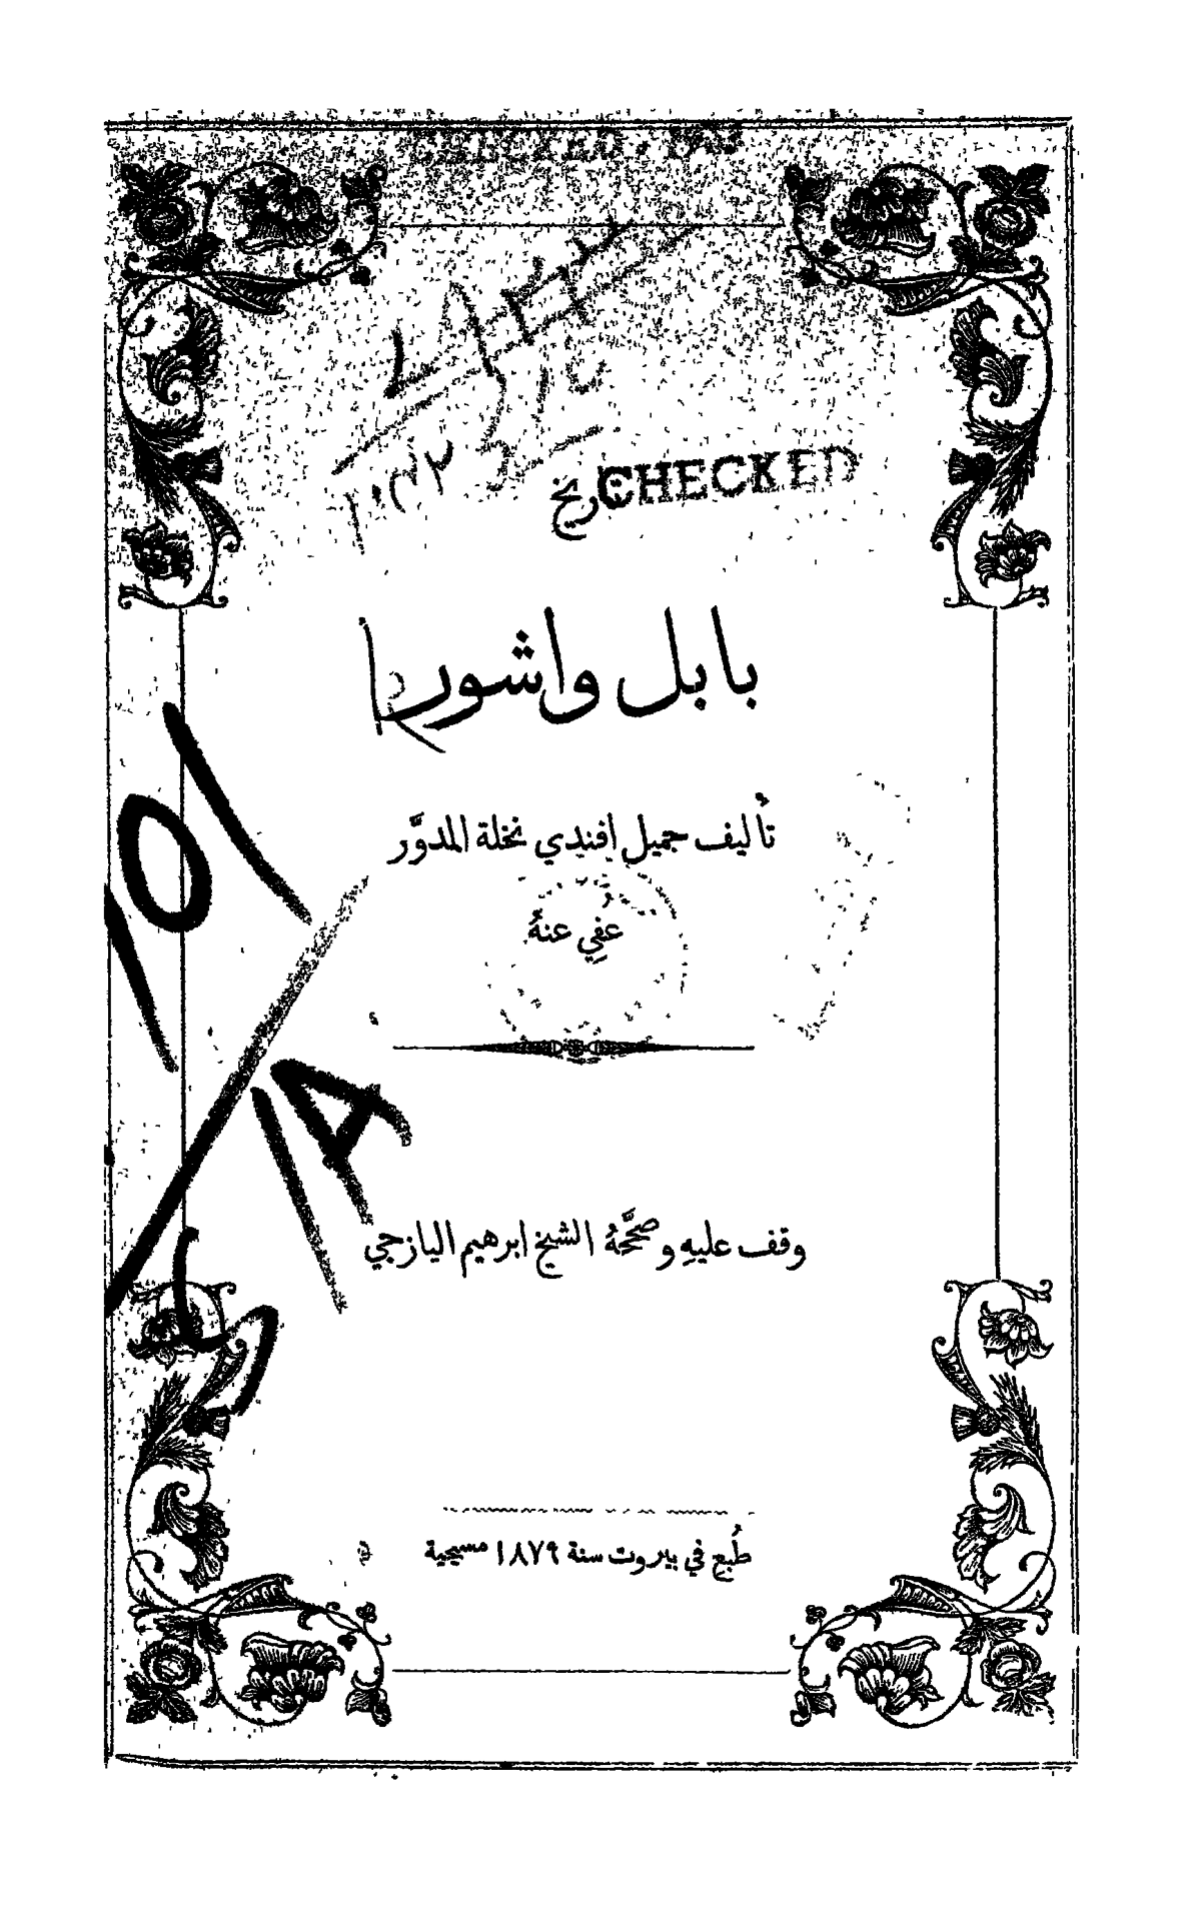 CHECKED
تاريخ
بابل واشور
تأليف جميل افندي نخلة المدوَّر
عُفِي عنهُ
وقف عليهِ وصحَّحهُ الشيخ ابرهيم اليازجي
طُبع في بيروت سنة ١٨٧٩ مسيحية